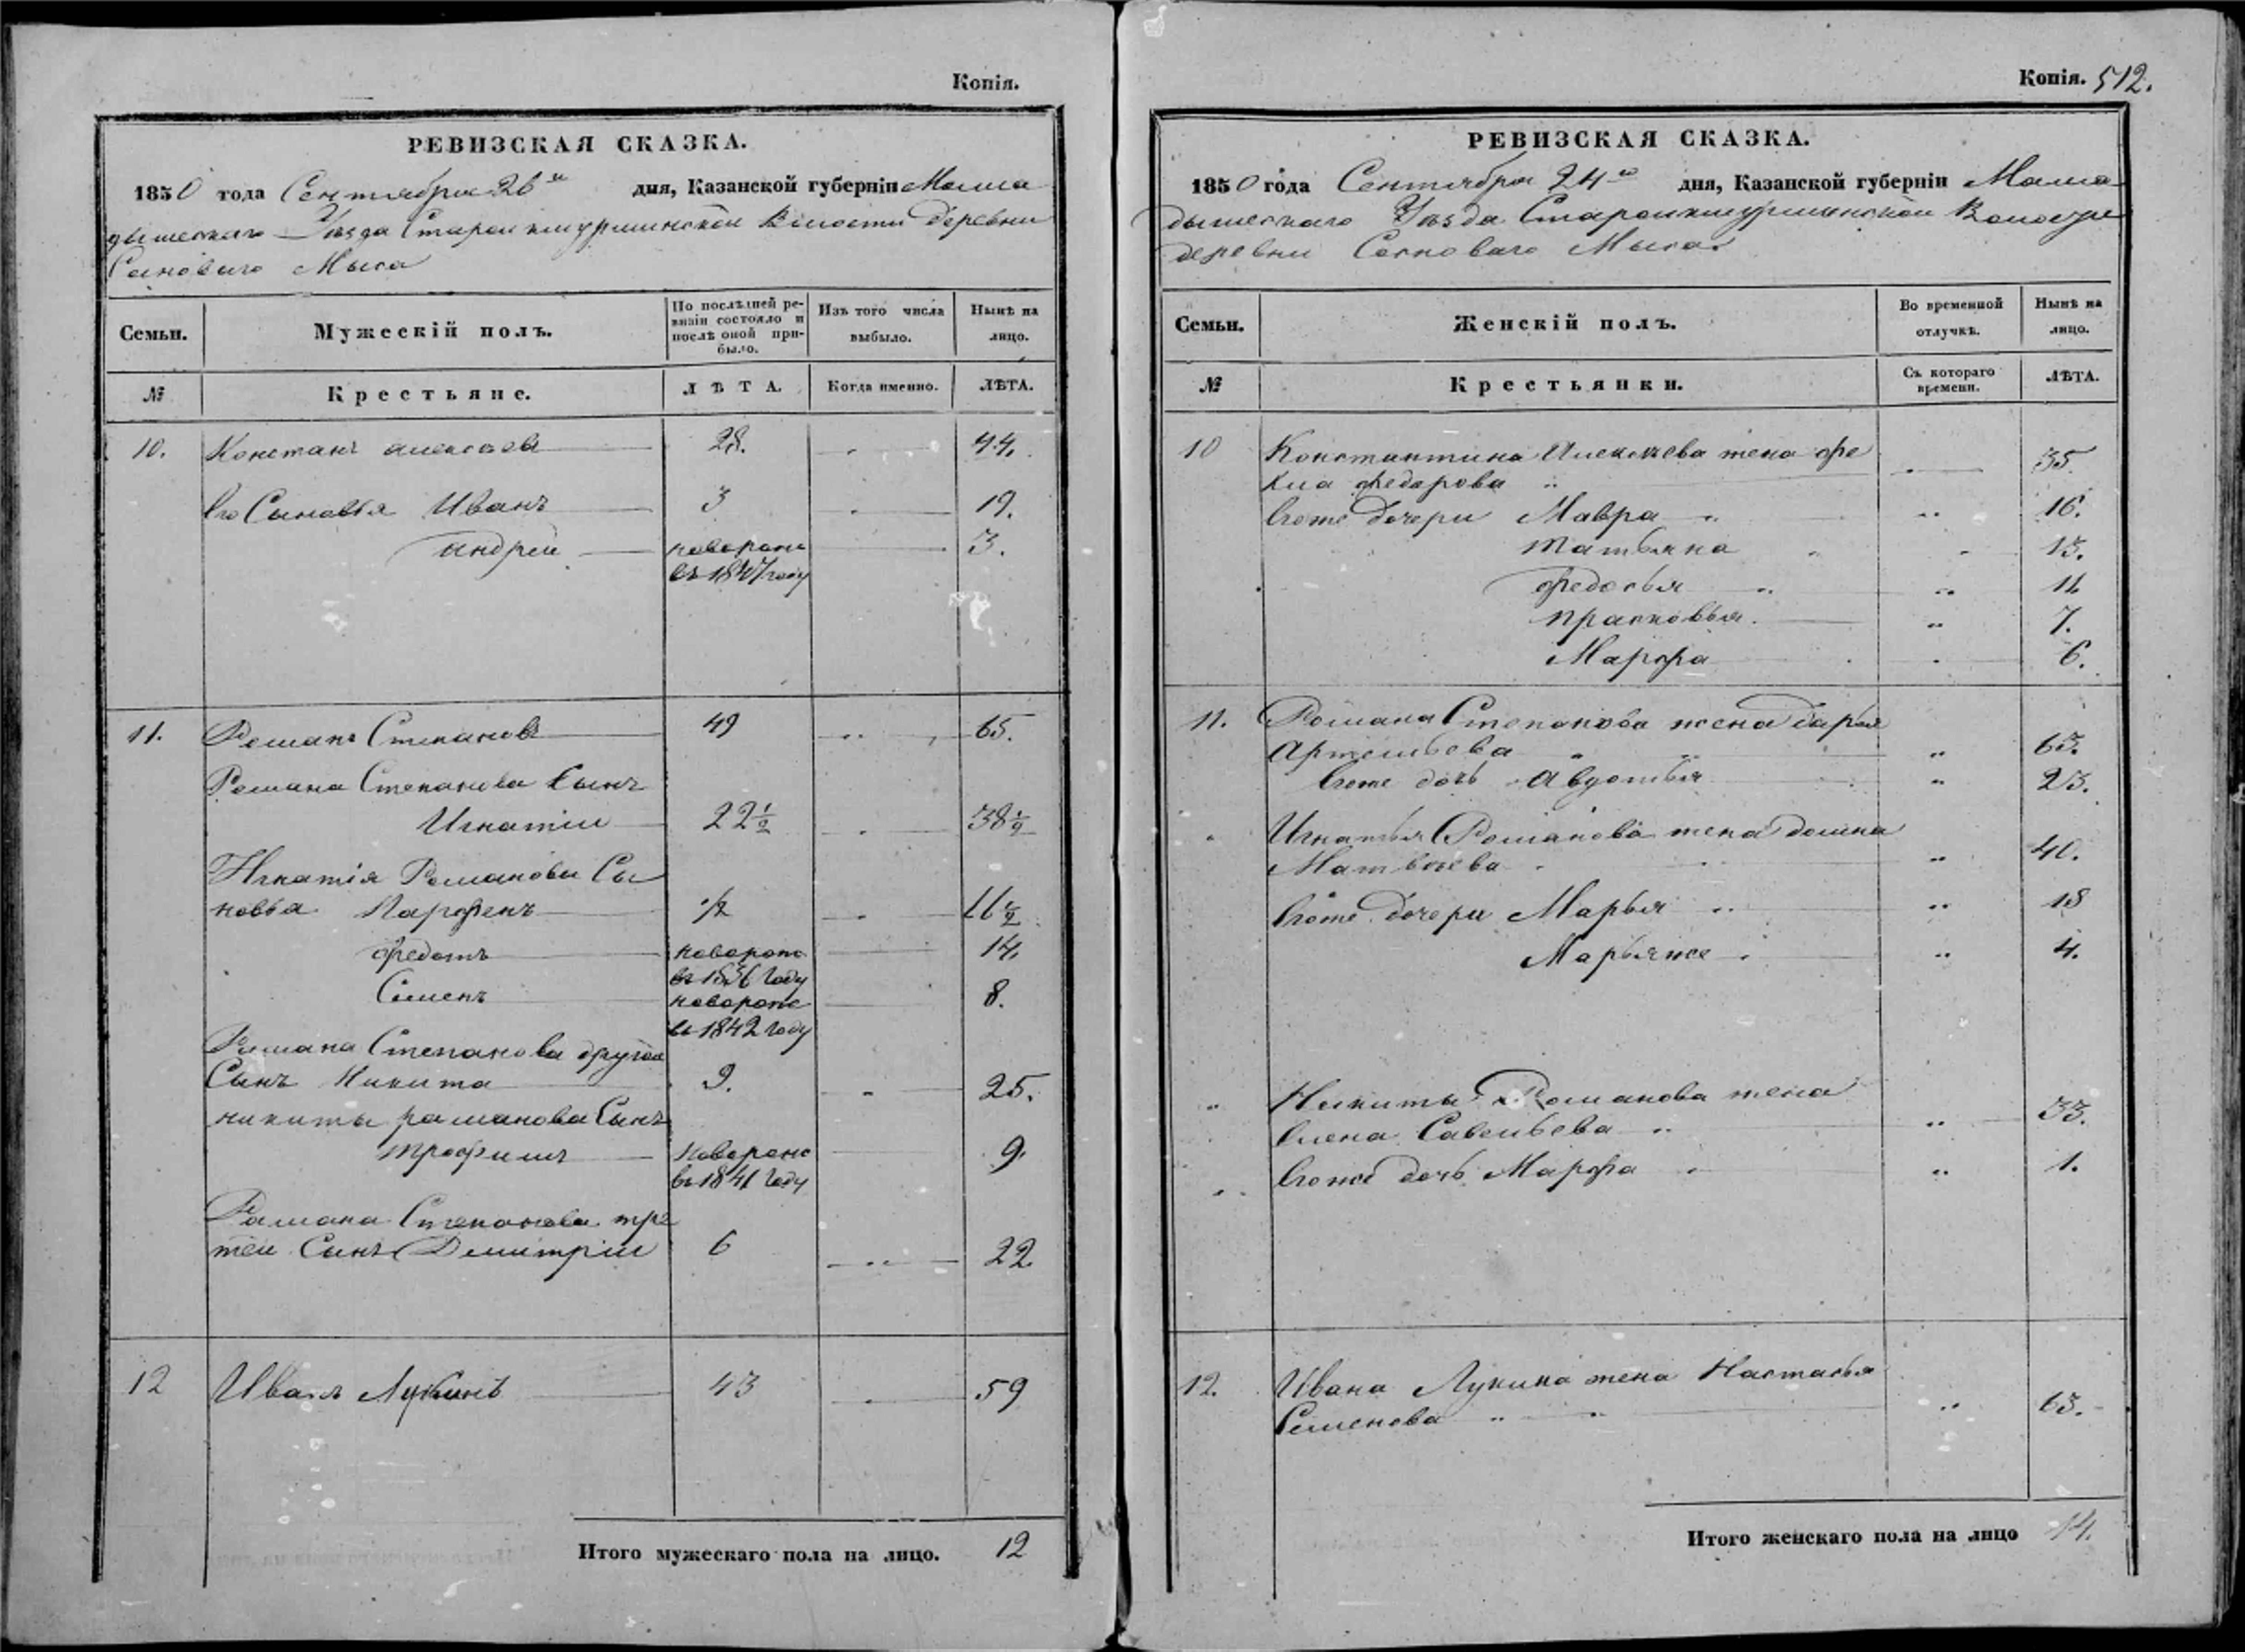 Копія.
РЕВИЗСКАЯ СКАЗКА.
1850 года Сентября 26го дня, Казанской губерніи Мама
дышскаго Уѣзда Староикшурминской Волости деревни
Сосноваго Мыса
Семьи.
Мужескій полъ.
По послѣдней ре-
визіи состояло и
послѣ оной при-
было.
Изъ того числа
выбыло.
Нынѣ на
лицо.
№
Крестьяне.
ЛѢТА.
Когда именно.
ЛѢТА.
10. Констанъ алексѣевъ 28. 44.
Его Сыновья Иванъ 3 19.
андреи новорож 3.
въ 1847 году
11. Романъ Степановъ 49 65.
Романа Степанова Сынъ
Игнатіи 22½ 38½
Игнатія Романова Сы
новья Парфенъ ½ 16½
федотъ новорож 14.
въ 1836 году
Семенъ новорож 8.
въ 1842 году
Романа Степанова другои
Сынъ Никита 9. 25.
никиты романова Сынъ
трофимъ новорож 9.
въ 1841 году
Романа Степанова тре
теи Сынъ Дмитріи 6 22.
12 Иванъ Лукинъ 43 59
Итого мужескаго пола на лицо. 12
Копія. 512.
РЕВИЗСКАЯ СКАЗКА.
1850 года Сентября 24го дня, Казанской губерніи Мама
дышскаго Уѣзда Староикшурминской Волости
деревни Сосноваго Мыса
Семьи.
Женскій полъ.
Во временной
отлучкѣ.
Нынѣ на
лицо.
№
Крестьянки.
Съ котораго
времени.
ЛѢТА.
10 Константина Алексѣева жена фе
кла федорова 35.
Егоже дочери Мавра 16.
татьяна 13.
федосья 11.
прасковья 7.
Марфа 6.
11. Романа Степанова жена дарья
Артемьева 63.
Егоже дочь Авдотья 23.
Игнатья Романова жена домна
Матвѣева 40.
Егоже дочери Марья 18
Марьяже 4.
Никиты Романова жена
Елена Савельева 33.
Егоже дочь Марфа 1.
12. Ивана Лукина жена Настасья
Семенова 63.
Итого женскаго пола на лицо 14.